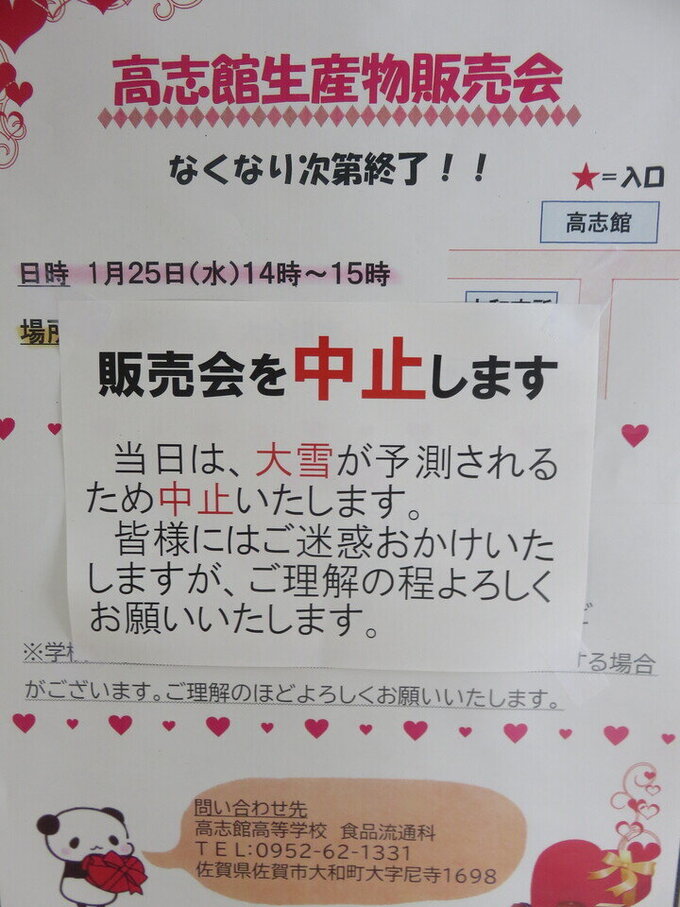 高志館生産物販売会
なくなり次第終了!!
★=入口
高志館
日時 1月25日(水)14時～15時
場所
販売会を中止します
当日は、大雪が予測される
ため中止いたします。
皆様にはご迷惑おかけいた
しますが、ご理解の程よろしく
お願いいたします。
※学
する場合
がございます。ご理解のほどよろしくお願いいたします。
問い合わせ先
高志館高等学校 食品流通科
TEL:0952-62-1331
佐賀県佐賀市大和町大字尼寺1698